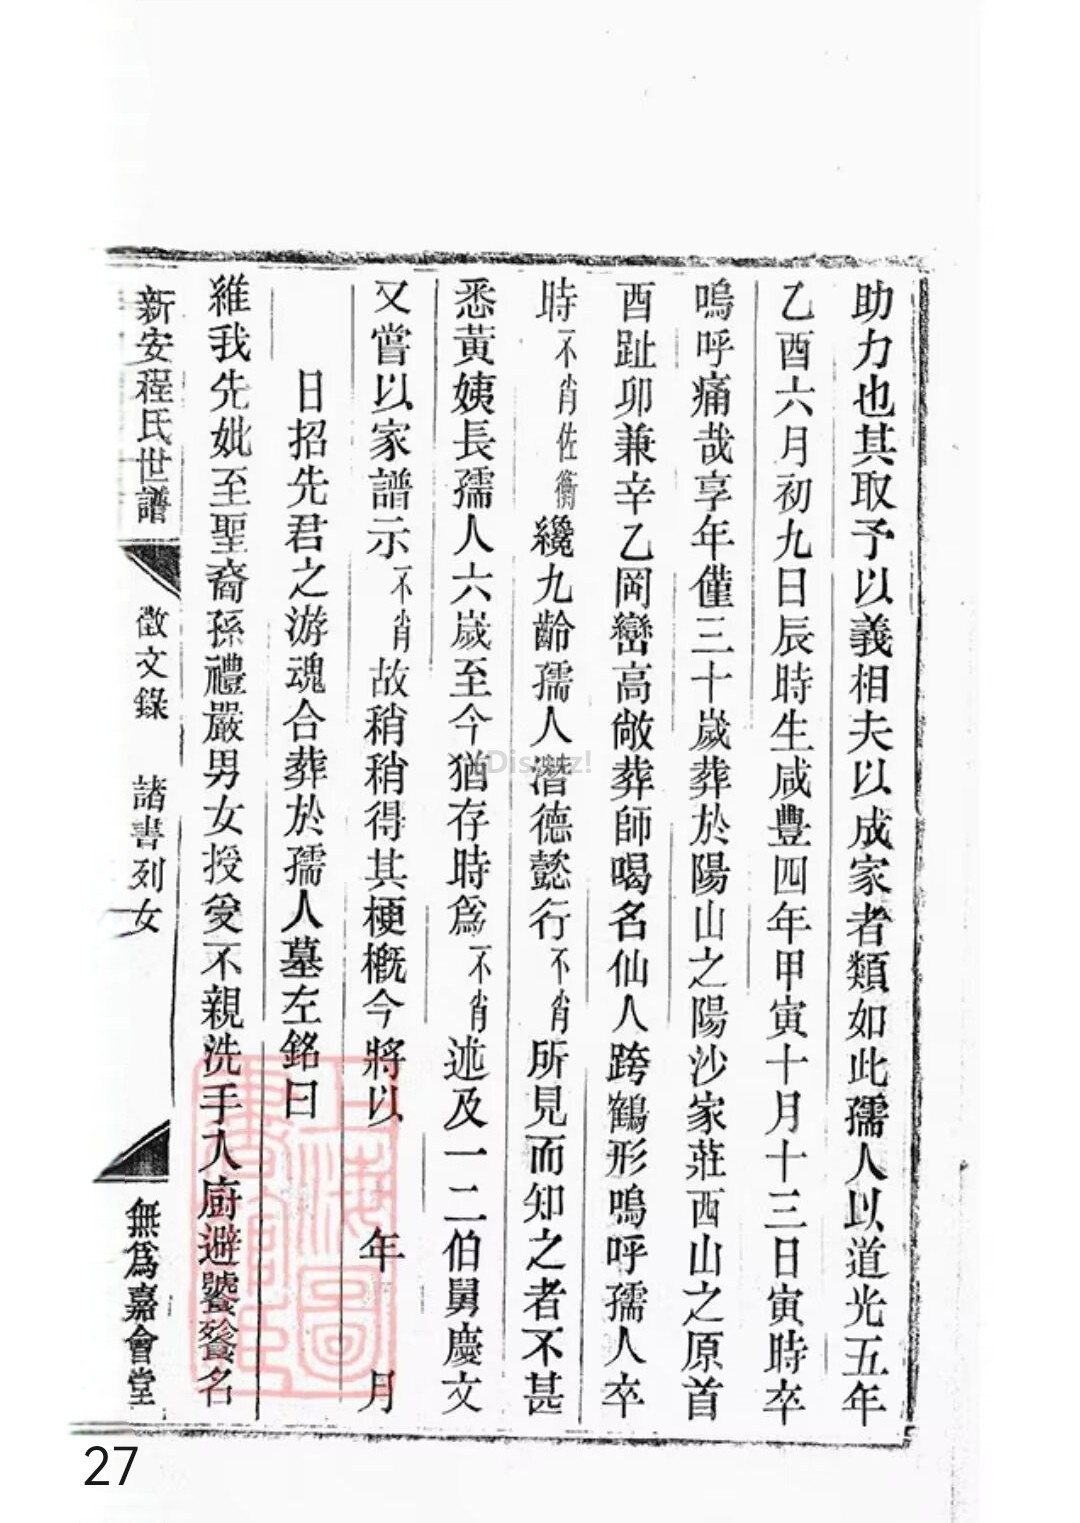 助力也其取予以義相夫以成家者類如此孺人以道光五年
乙酉六月初九日辰時生咸豐四年甲寅十月十三日寅時卒
嗚呼痛哉享年僅三十歲葬於陽山之陽沙家莊西山之原首
酉趾卯兼辛乙岡巒高敞葬師喝名仙人跨鶴形嗚呼孺人卒
時不肖佐衡纔九齡孺人潛德懿行不肖所見而知之者不甚
悉黃姨長孺人六歲至今猶存時爲不肖述及一二伯舅慶文
又嘗以家譜示不肖故稍稍得其梗槪今將以 年 月
日招先君之游魂合葬於孺人墓左銘曰
維我先妣至聖裔孫禮嚴男女授受不親洗手入廚避饔飱名
新安程氏世譜 徵文錄 諸書列女 無爲嘉會堂
Discuz!
上海圖書館藏
27